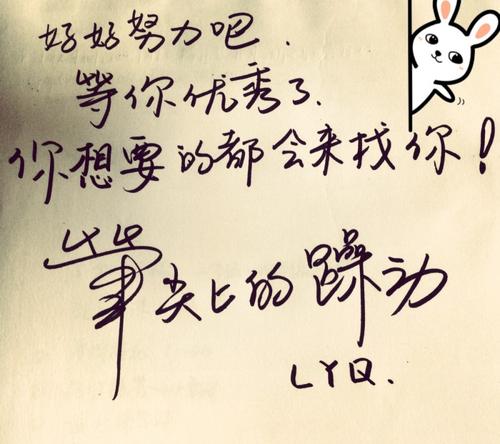 好好努力吧.
等你优秀了.
你想要的都会来找你!
笔尖上的躁动
LYQ.